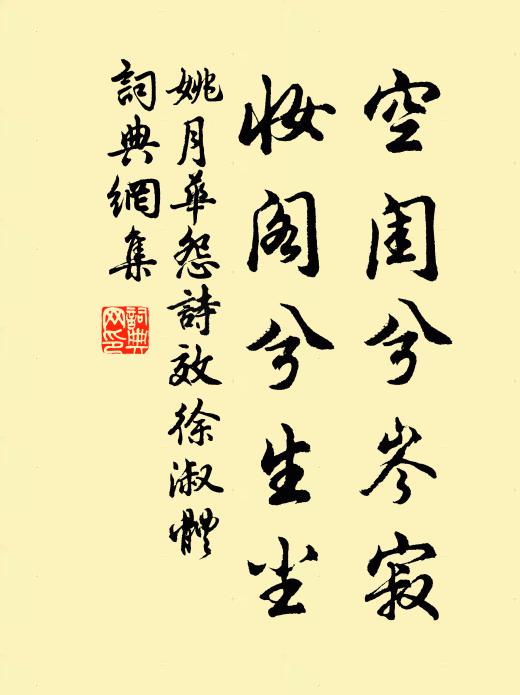 空闺兮岑寂
妆阁兮生尘
姚月華怨詩效徐淑體
詞典網集
詞典网印